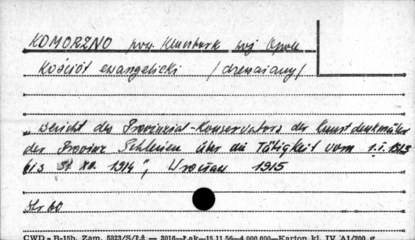 KOMORZNO pow. Kluczbork woj. Opole
Kościół ewangelicki /drewniany/
„Bericht des Provinzial-Konservators der Kunstdenkmäler
der Provinz Schlesien über die Tätigkeit vom 1.I.1913
bis 31 XII. 1914", Wrocław 1915
Str. 60
CWD - B-15h. Zam. 5923/S/Łż — 3016—Łak—15.11.56—4.000.000—Karton kl. IV A1/200 g